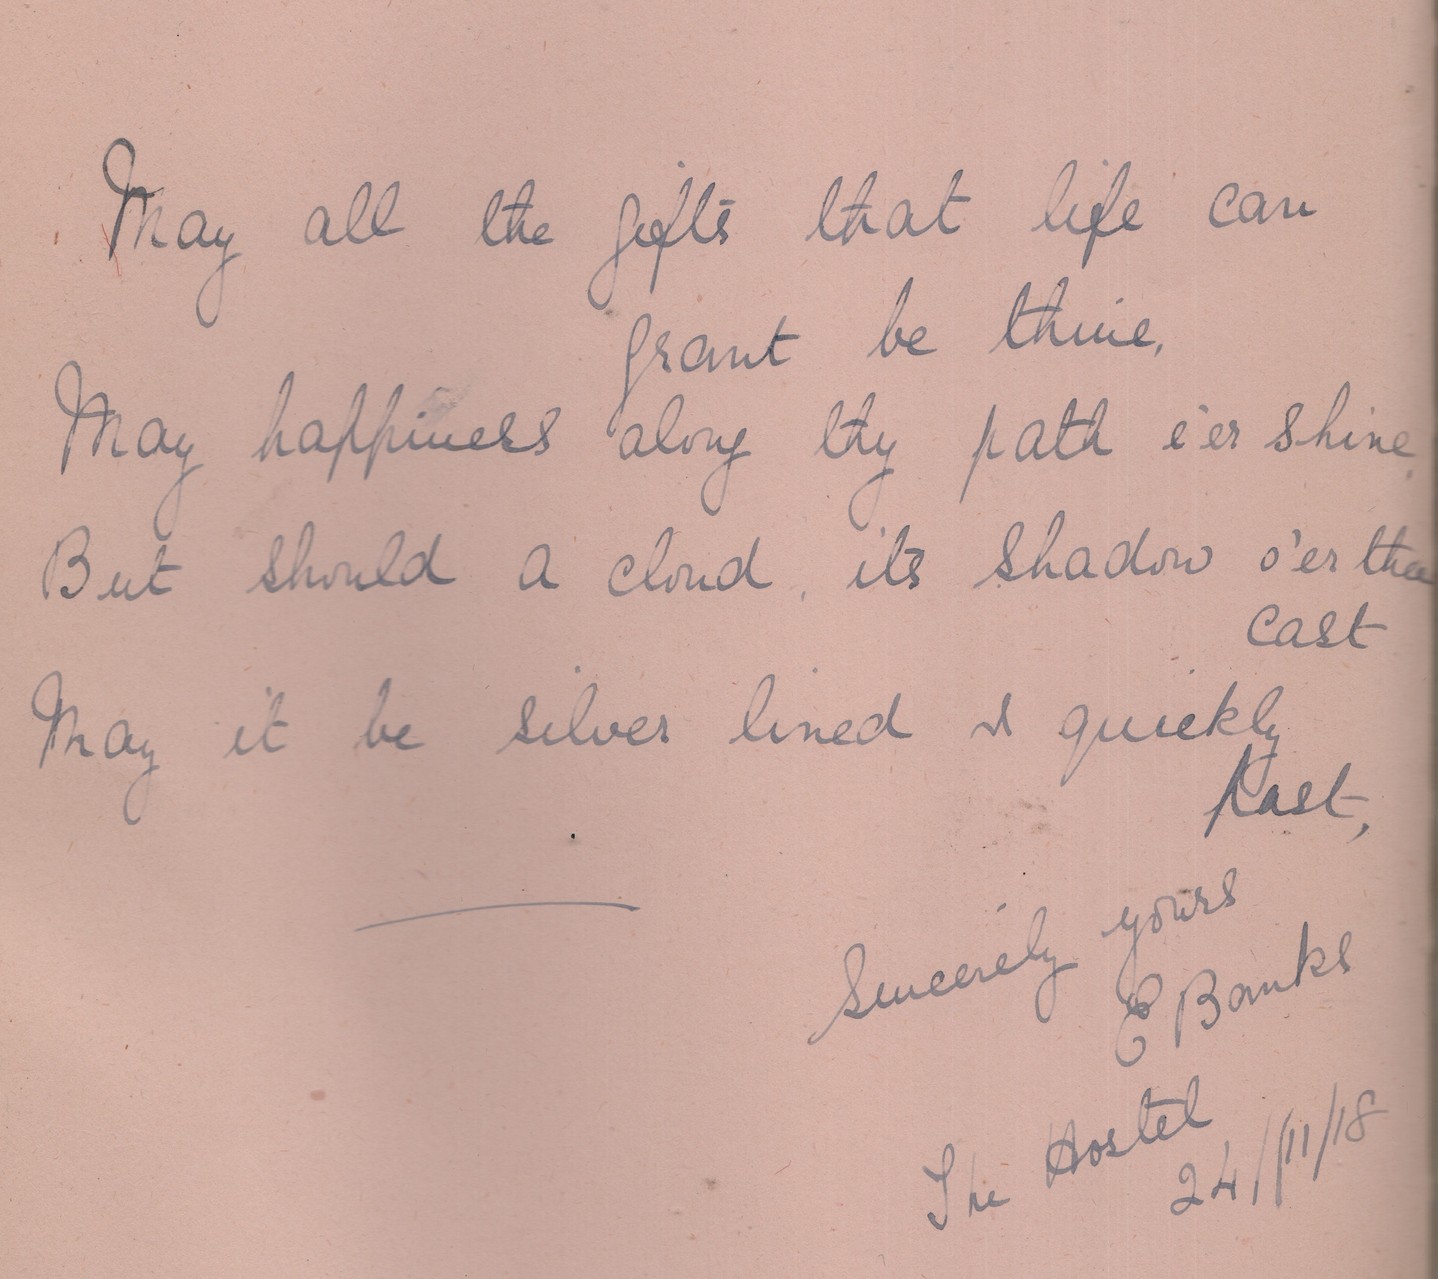 May all the gifts that life can
grant be thine,
May happiness along thy path e'er shine,
But should a cloud, its shadow o'er thee
cast
May it be silver lined & quickly
past,
Sincerely yours
E Banks
The Hostel
24/11/18